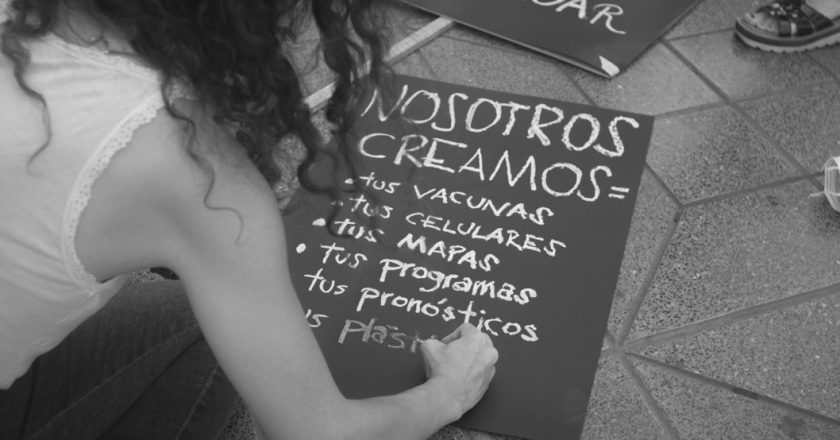 NOSOTROS
CREAMOS=
• tus VACUNAS
• tus CELULARES
• tus MAPAS
• tus programas
tus pronósticos